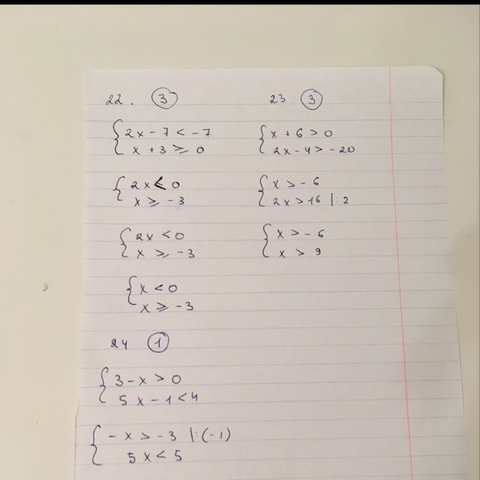 22. 3
2x - 7 < -7
x + 3 ⩾ 0
2x < 0
x ⩾ -3
2x < 0
x ⩾ -3
x < 0
x ⩾ -3
23 3
x + 6 > 0
2x - 4 > -20
x > -6
2x > 16 |:2
x > -6
x > 9
24 1
3 - x > 0
5x - 1 < 4
-x > -3 |:(-1)
5x < 5